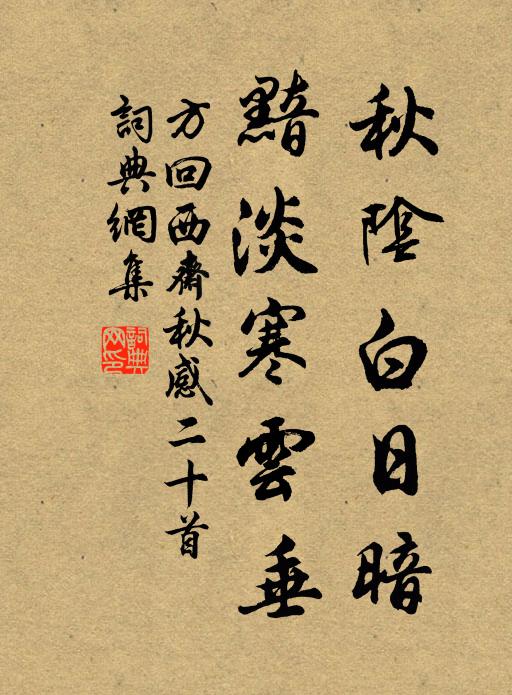 秋陰白日暗
黯淡寒雲垂
方回西齋秋感二十首
詞典網集
詞典网印